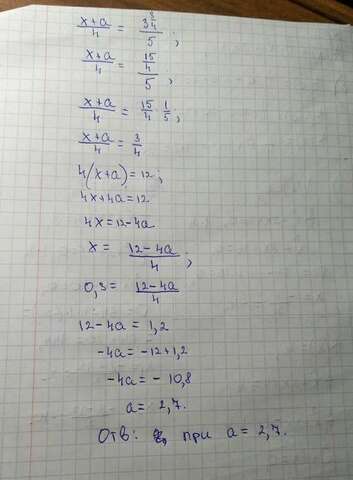 (x+a)/4 = (3 3/4)/5 ;
(x+a)/4 = (15/4)/5 ;
(x+a)/4 = 15/4 · 1/5 ;
(x+a)/4 = 3/4
4(x+a) = 12 ;
4x+4a = 12
4x = 12-4a
x = (12-4a)/4 ;
0,3 = (12-4a)/4
12-4a = 1,2
-4a = -12+1,2
-4a = -10,8
a = 2,7.
Отв: при a = 2,7.